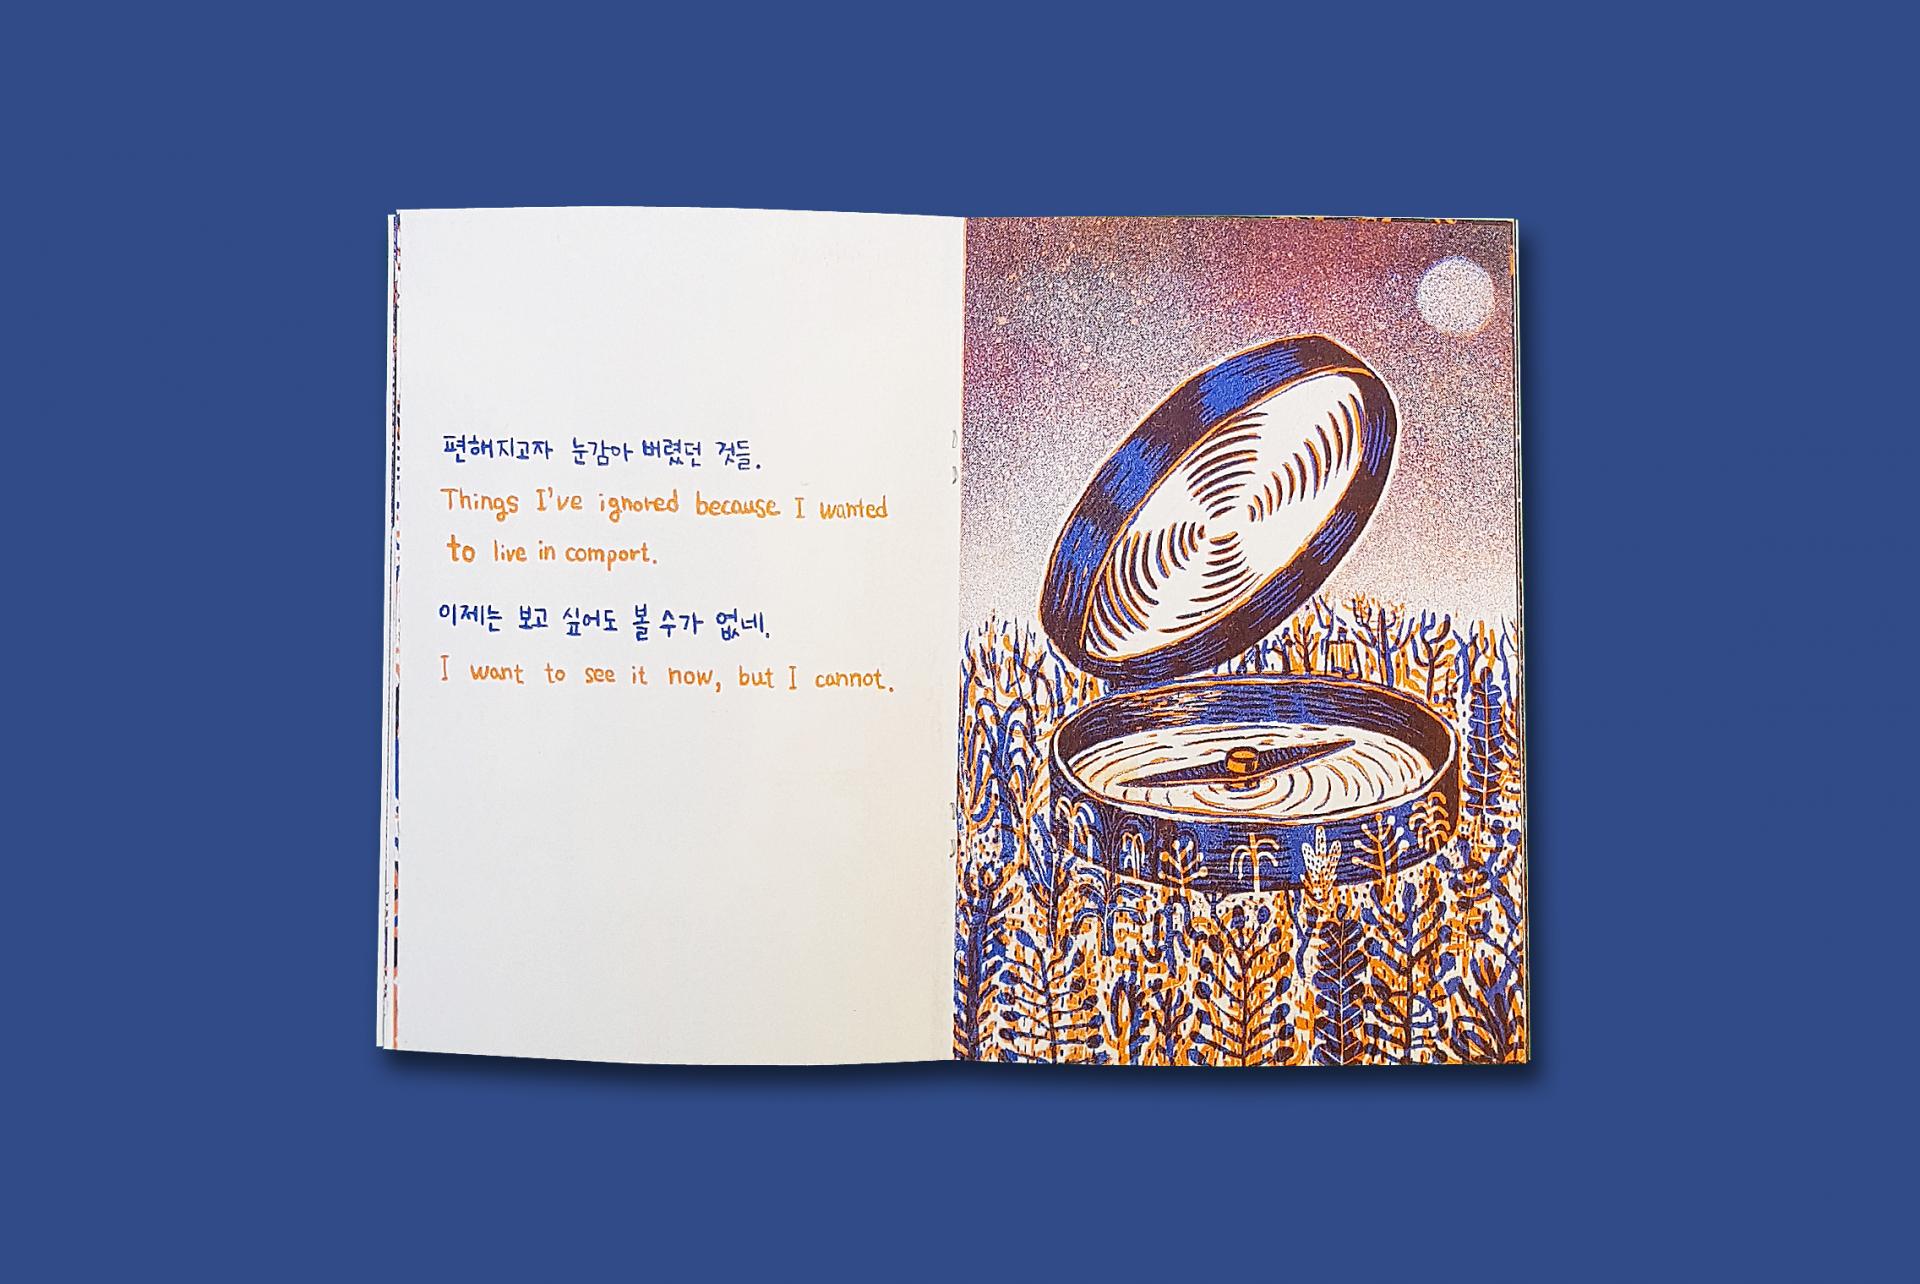 편해지고자 눈감아 버렸던 것들.
Things I've ignored because I wanted
to live in comport.
이제는 보고 싶어도 볼 수가 없네.
I want to see it now, but I cannot.